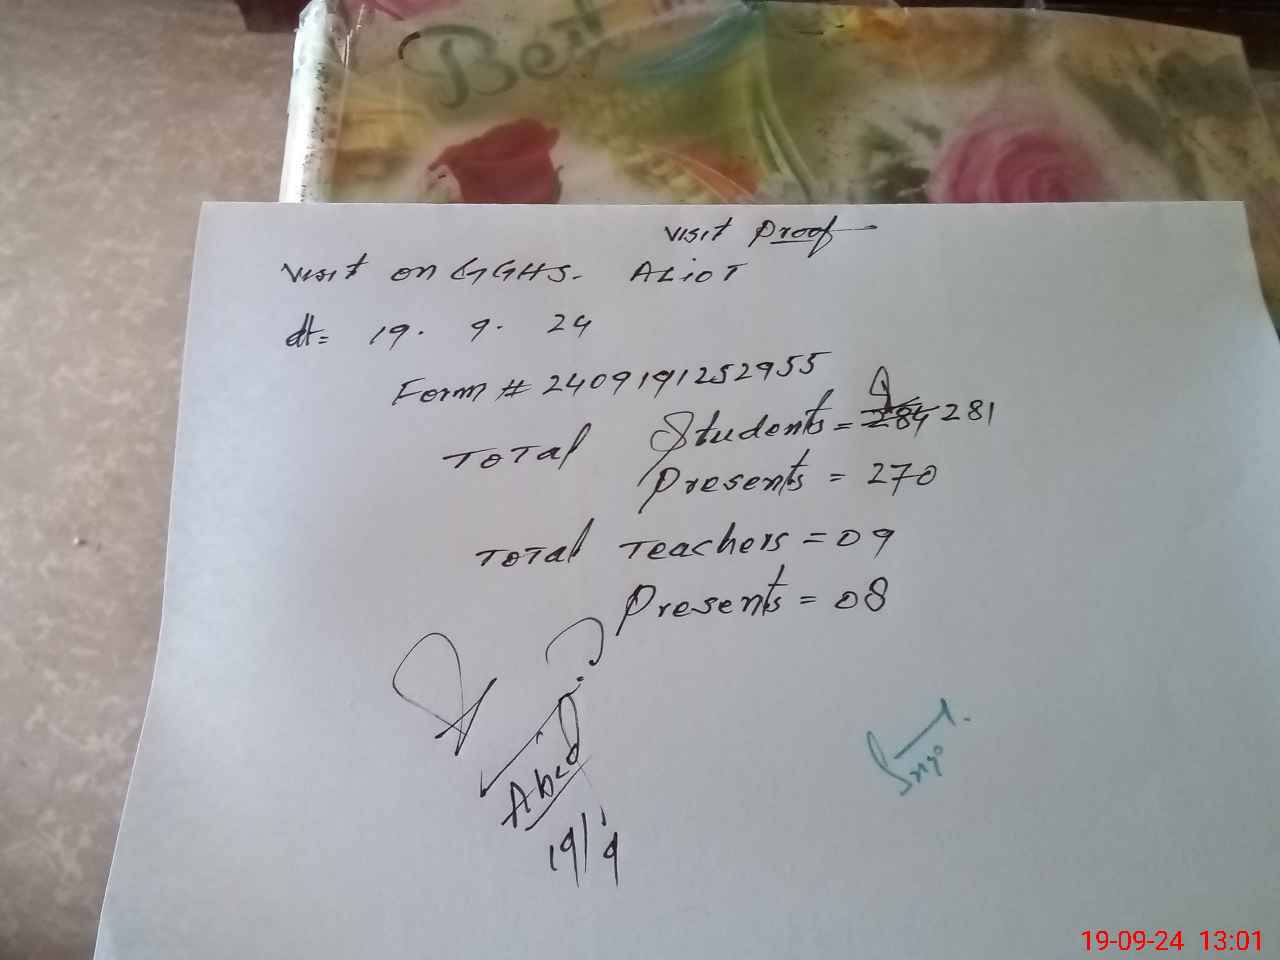 Best
Visit Proof
Visit on GGHS. ALIOT
dt= 19. 9. 24
Form # 2409191252955
Total Students = 284 281
Presents = 270
Total Teachers = 09
Presents = 08
Abid
19/9
19-09-24 13:01